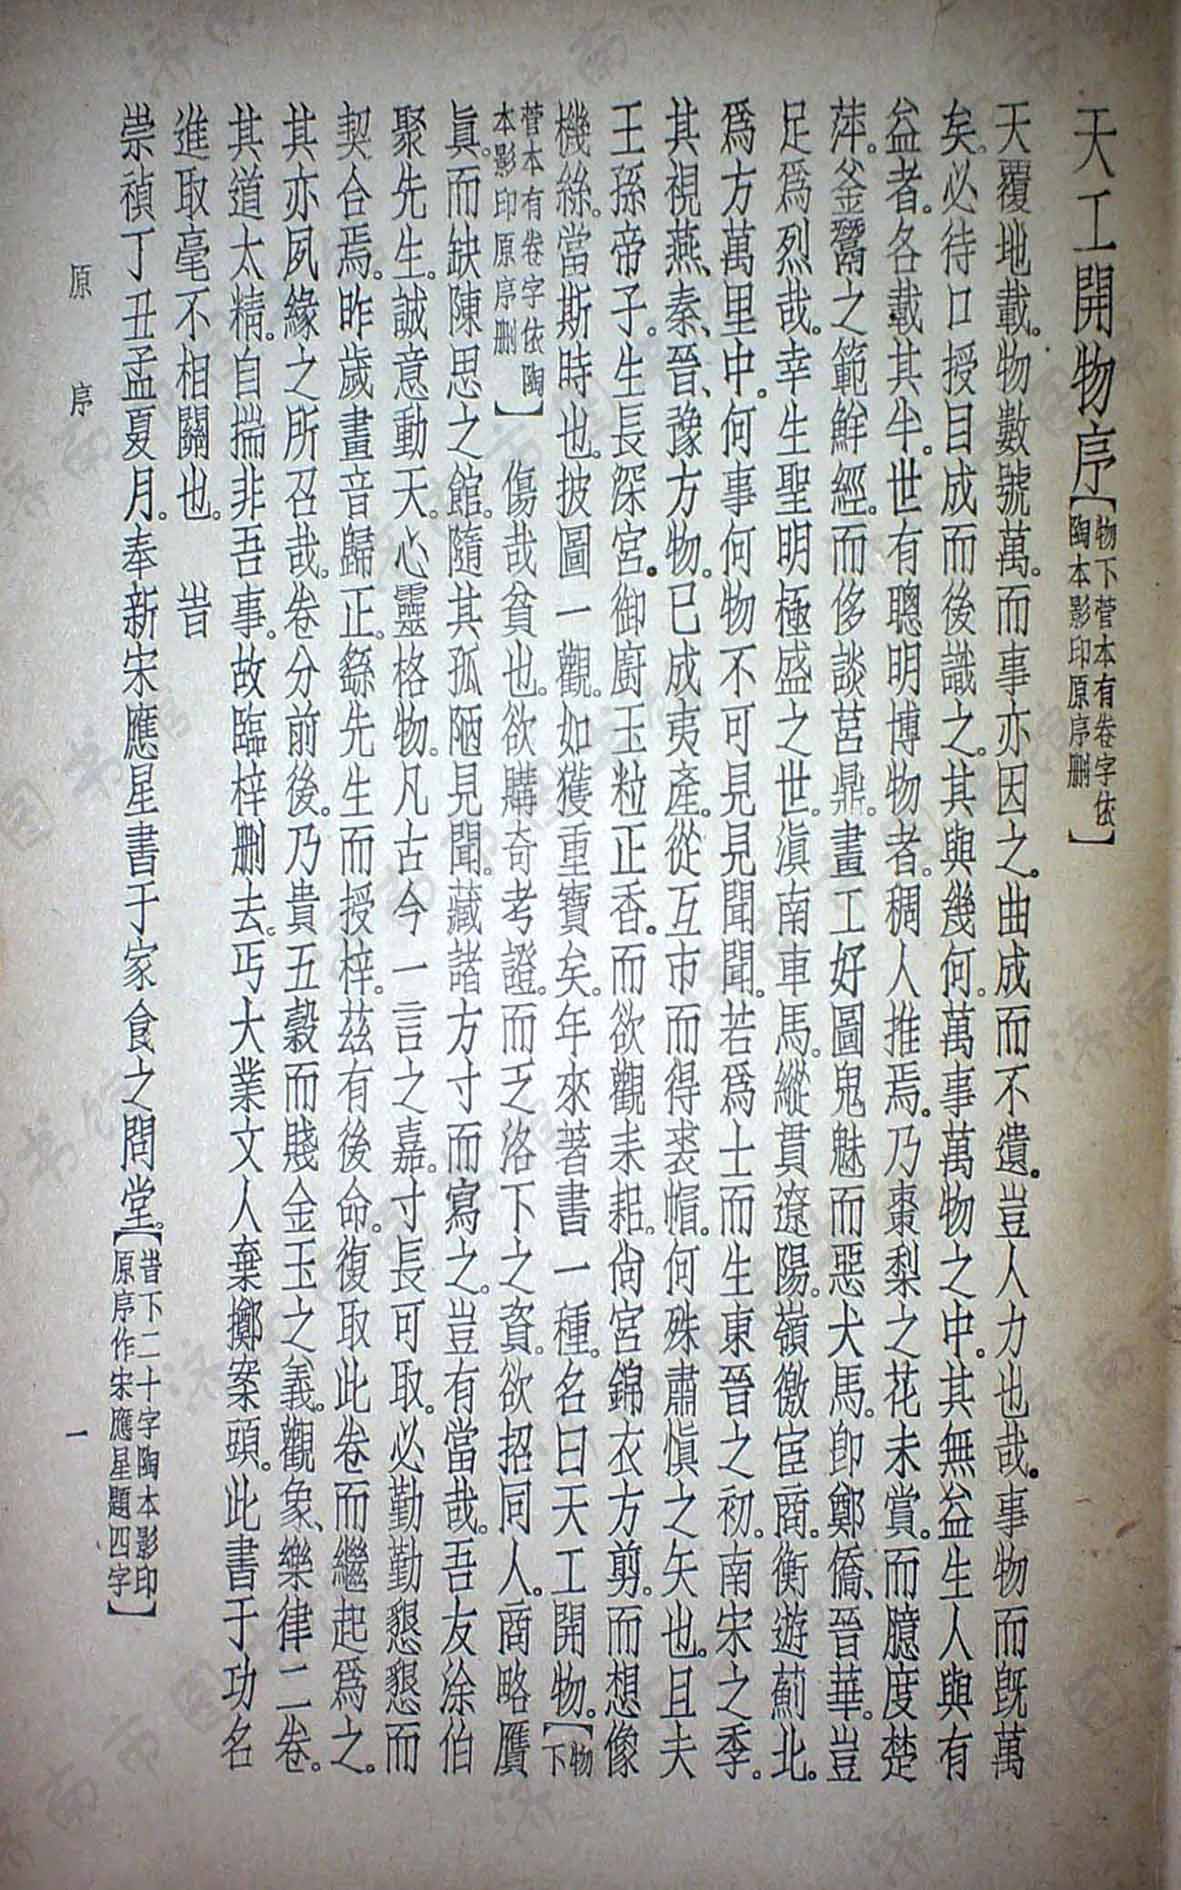 天工開物序【物下菅本有卷字依陶本影印原序删】
天覆地載。物數號萬。而事亦因之。曲成而不遺。豈人力也哉。事物而旣萬
矣。必待口授目成而後識之。其與幾何。萬事萬物之中。其無益生人與有
益者。各載其半。世有聰明博物者。稠人推焉。乃棗梨之花未賞。而臆度楚
萍。釜鬵之範鮮經。而侈談莒鼎。畫工好圖鬼魅而惡犬馬。卽鄭僑、晉華。豈
足爲烈哉。幸生聖明極盛之世。滇南車馬。縱貫遼陽。嶺徼宦商。衡遊薊北。
爲方萬里中。何事何物不可見見聞聞。若爲士而生東晉之初。南宋之季。
其視燕、秦、晉、豫方物。已成夷產。從互市而得裘帽。何殊肅愼之矢也。且夫
王孫帝子。生長深宮。御廚玉粒正香。而欲觀耒耜。尙宮錦衣方剪。而想像
機絲。當斯時也。披圖一觀。如獲重寶矣。年來著書一種。名曰天工開物。【物下
菅本有卷字依陶本影印原序删】傷哉貧也。欲購奇考證。而乏洛下之資。欲招同人。商略贋
眞。而缺陳思之館。隨其孤陋見聞。藏諸方寸而寫之。豈有當哉。吾友涂伯
聚先生。誠意動天。心靈格物。凡古今一言之嘉。寸長可取。必勤勤懇懇而
契合焉。昨歲畫音歸正。繇先生而授梓。茲有後命。復取此卷而繼起爲之。
其亦夙緣之所召哉。卷分前後。乃貴五穀而賤金玉之義。觀象、樂律二卷。
其道太精。自揣非吾事。故臨梓删去。丐大業文人棄擲案頭。此書于功名
進取毫不相關也。　旹
崇禎丁丑孟夏月。奉新宋應星書于家食之問堂。【旹下二十字陶本影印原序作宋應星題四字】
原　序　一